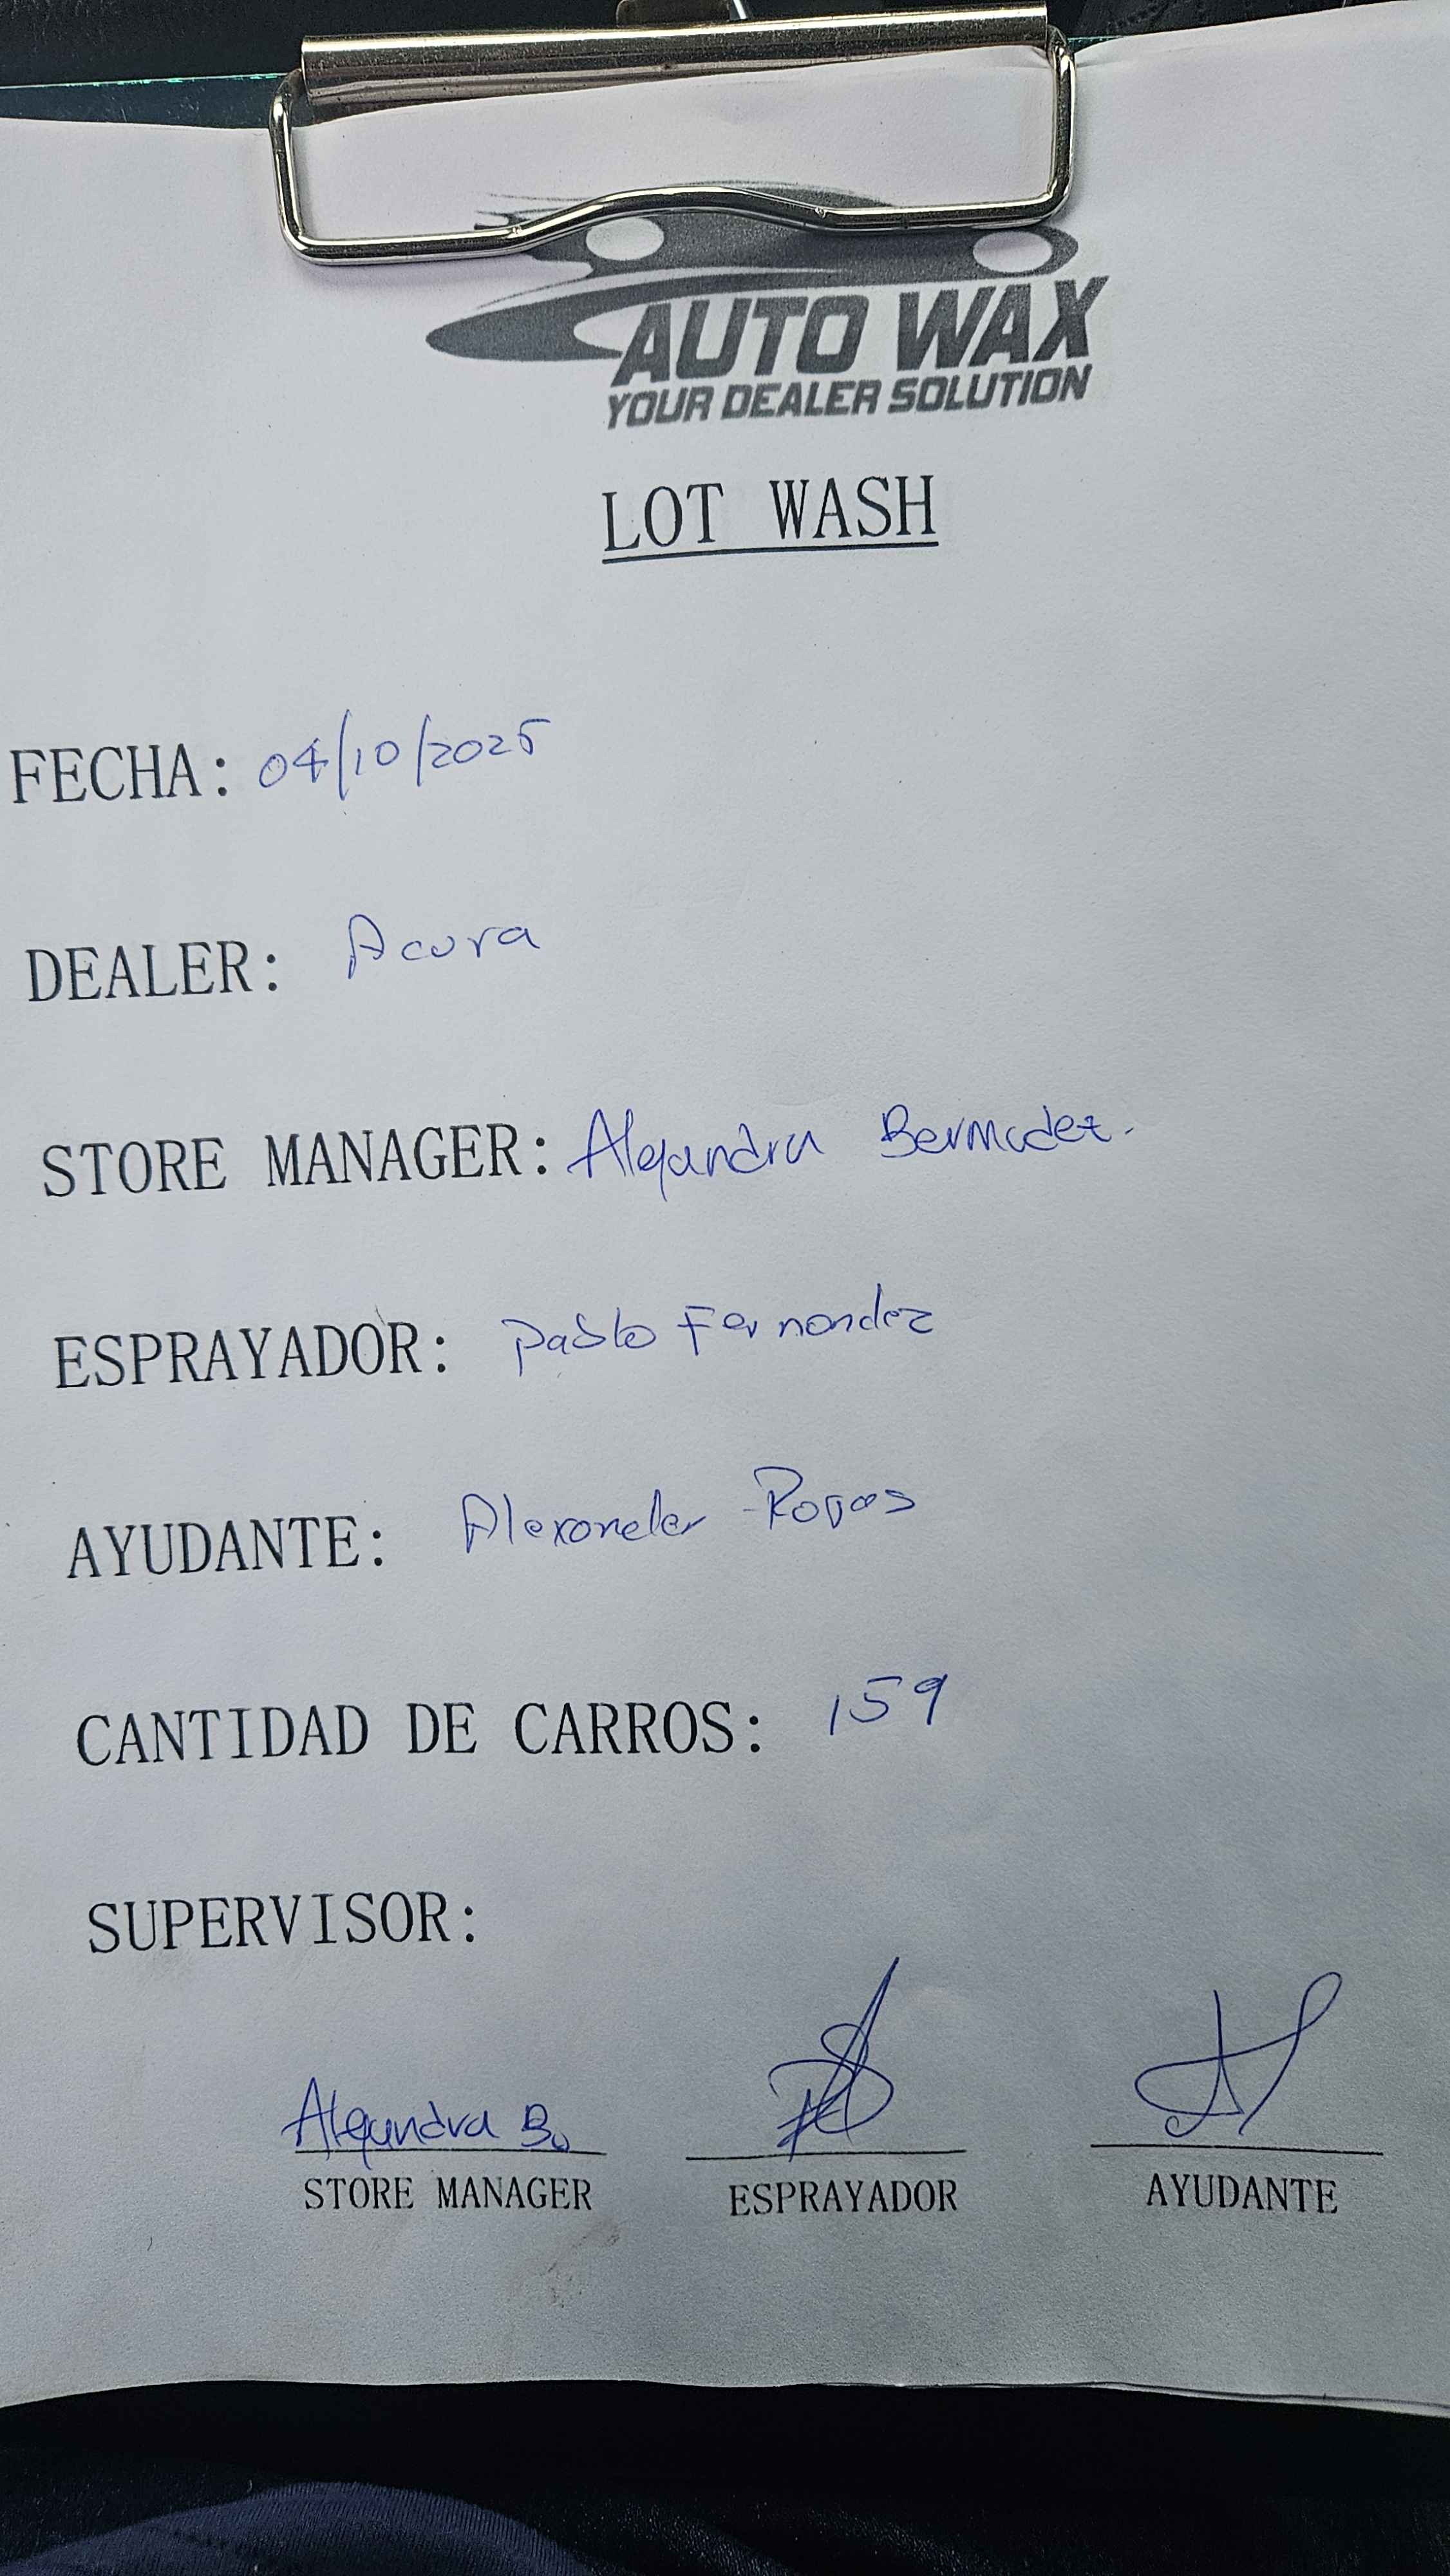 AUTO WAX
YOUR DEALER SOLUTION
LOT WASH
FECHA: 04/10/2025
DEALER: Acura
STORE MANAGER: Alejandra Bermudez.
ESPRAYADOR: Pablo Fernandez
AYUDANTE: Alexander Rojas
CANTIDAD DE CARROS: 159
SUPERVISOR:
Alejandra B.
STORE MANAGER ESPRAYADOR AYUDANTE